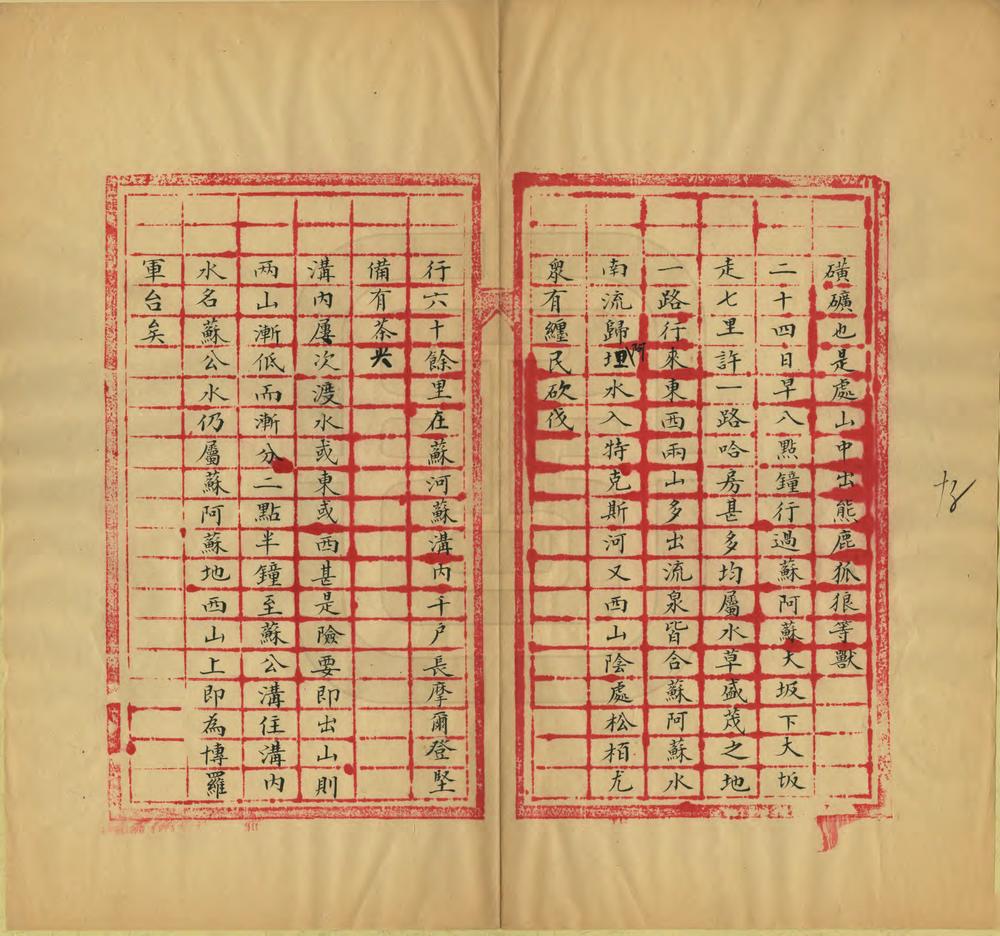 磺礦也是處山中出熊鹿狐狼等獸
二十四日早八點鐘行過蘇阿蘇大坂下大坂
走七里許一路哈房甚多均屬水草盛茂之地
一路行來東西兩山多出流泉皆合蘇阿蘇水
南流歸阿里水入特克斯河又西山陰處松栢尤
衆有纏民砍伐
行六十餘里在蘇河蘇溝內千戶長摩爾登堅
備有茶尖
溝內屢次渡水或東或西甚是險要即出山則
兩山漸低而漸分二點半鐘至蘇公溝住溝內
水名蘇公水仍屬蘇阿蘇地西山上即為博羅
軍台矣